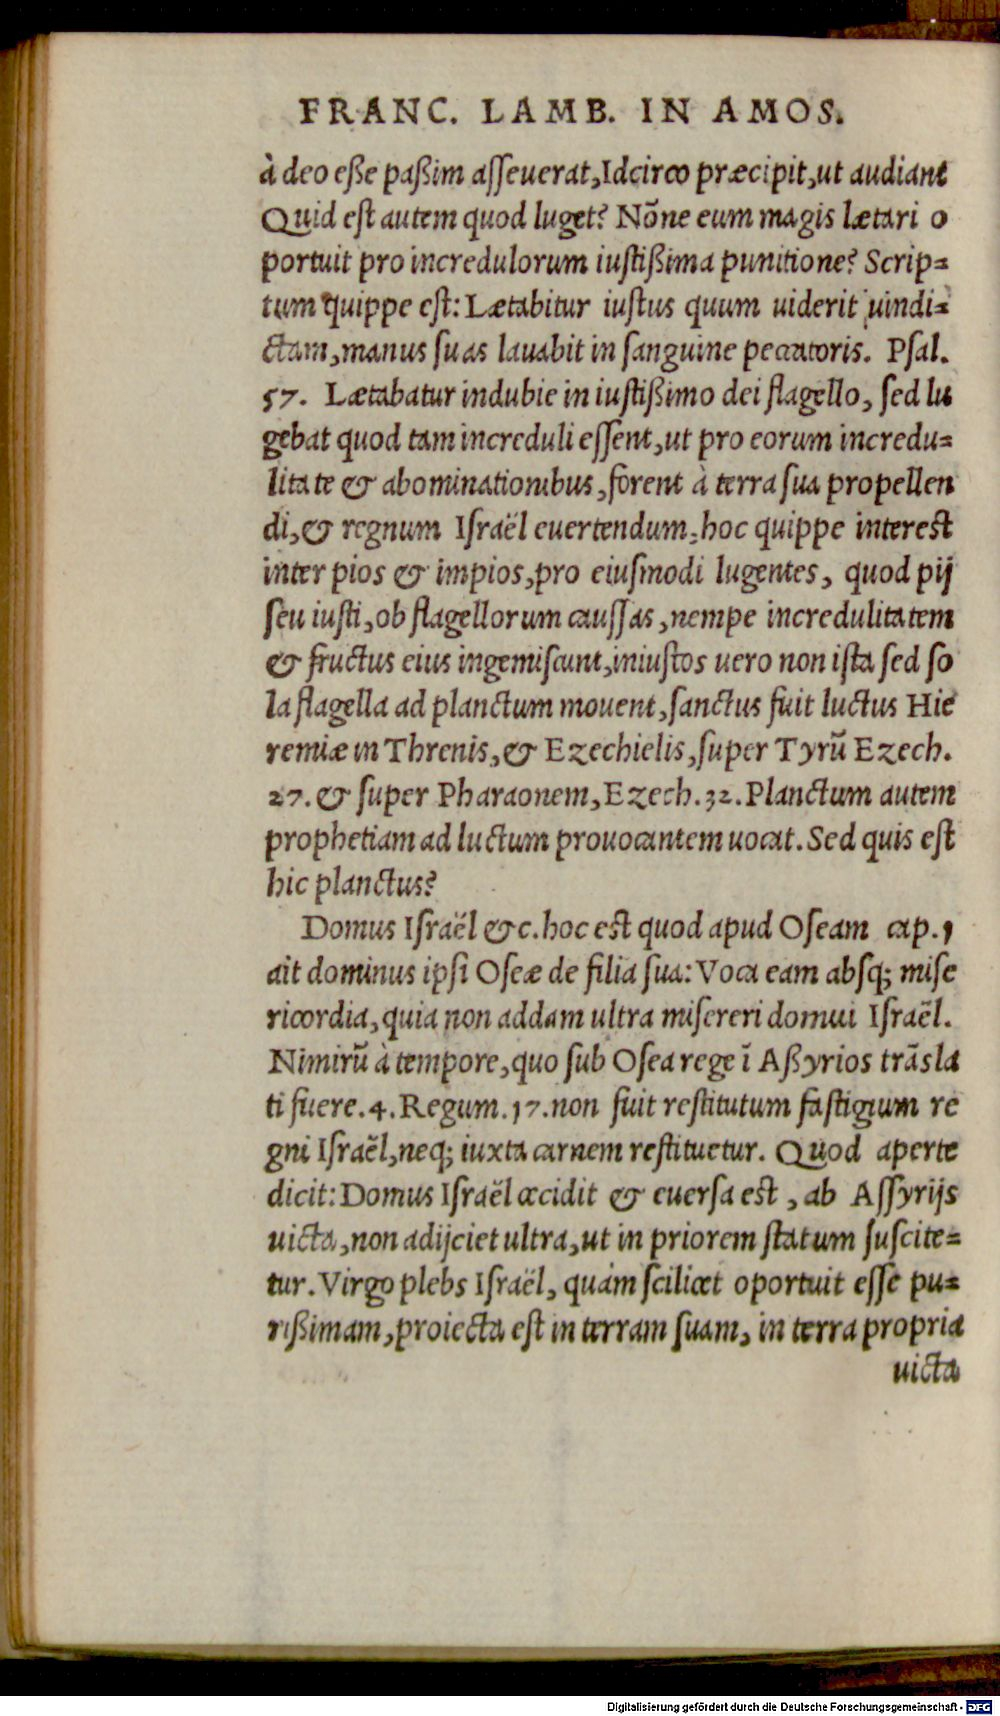 FRANC. LAMB. IN AMOS.
à deo eße paßim aſſeuerat,Idcirco præcipit,ut audiant
Quid eſt autem quod luget? Nõne eum magis lætari o
portuit pro incredulorum iuſtißima punitione? Scrip=
tum quippe eſt: Lætabitur iuſtus quum uiderit uindi=
ctam,manus ſuas lauabit in ſanguine peccatoris. Pſal.
57. Lætabatur indubie in iuſtißimo dei flagello, ſed lu
gebat quod tam increduli eſſent,ut pro eorum incredu=
litate & abominationibus,forent à terra ſua propellen
di,& regnum Iſraël euertendum,hoc quippe intereſt
inter pios & impios,pro eiuſmodi lugentes, quod pij
ſeu iuſti,ob flagellorum cauſſas,nempe incredulitatem
& fructus eius ingemiſcunt,iniuſtos uero non iſta ſed ſo
la flagella ad planctum mouent,ſanctus fuit luctus Hie
remiæ in Threnis,& Ezechielis,ſuper Tyrũ Ezech.
27.& ſuper Pharaonem,Ezech.32.Planctum autem
prophetiam ad luctum prouocantem uocat. Sed quis eſt
hic planctus?
Domus Iſraël &c.hoc eſt quod apud Oſeam cap.1
ait dominus ipſi Oſeæ de filia ſua: Voca eam abſq; miſe
ricordia,quia non addam ultra miſereri domui Iſraël.
Nimirũ à tempore,quo ſub Oſea rege ĩ Aßyrios trãſla
ti fuere.4.Regum.17.non fuit reſtitutum faſtigium re
gni Iſraël,neq; iuxta carnem reſtituetur. Quod aperte
dicit: Domus Iſraël cecidit & euerſa eſt, ab Aſſyrijs
uicta,non adijciet ultra,ut in priorem ſtatum ſuſcite=
tur. Virgo plebs Iſraël, quàm ſcilicet oportuit eſſe pu=
rißimam,proiecta eſt in terram ſuam, in terra propria
uicta
Digitalisierung gefördert durch die Deutsche Forschungsgemeinschaft - DFG